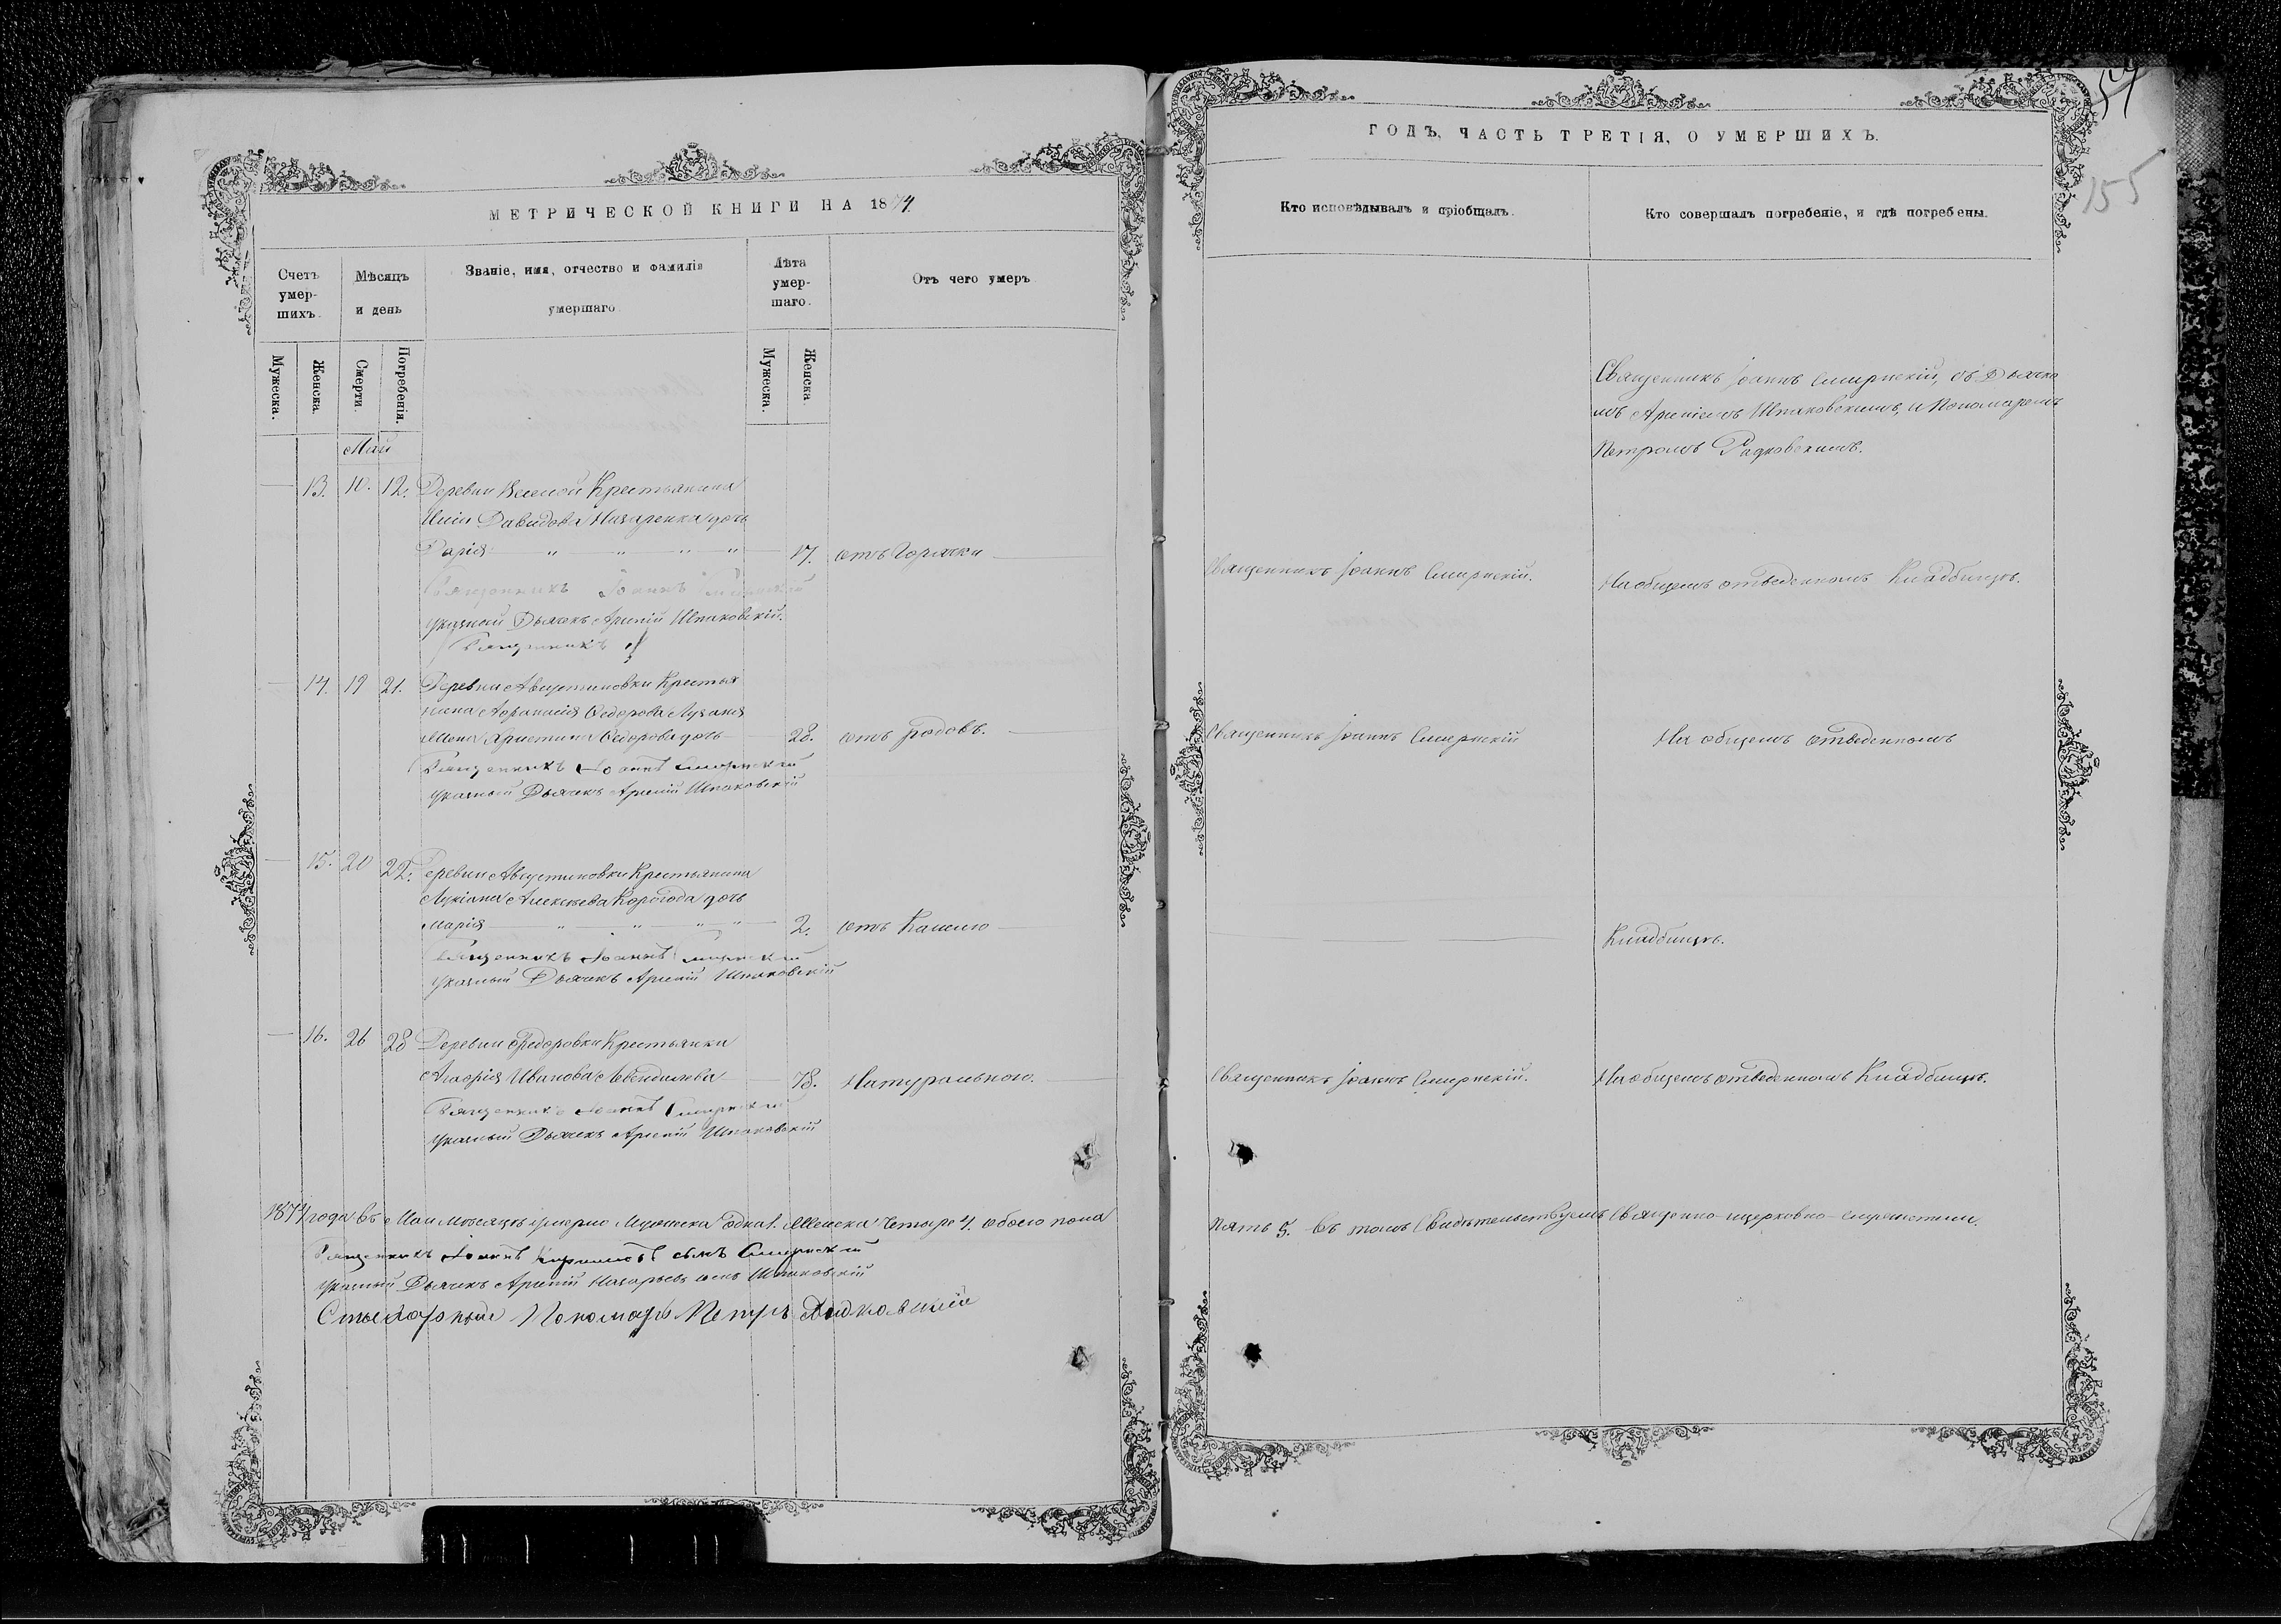 МЕТРИЧЕСКОЙ КНИГИ НА 1874
Счетъ умер-шихъ.
Мѣсяцъ и день
Званіе, имя, отчество и фамилія умершаго
Лѣта умер-шаго.
Отъ чего умеръ
Мужеска.
Женска.
Смерти.
Погребенія.
Мужеска.
Женска.
Май
13. 10. 12. Деревни Крестьянина
Давидова Назаренка дочь
Дарія 17. отъ Горячки
Священникъ Іоаннъ Смирнскій
указный Дьячекъ Арсеній Шпаковскій.
Священникъ
14. 19 21. Деревни Августиновки Крестья
нина Афанасія Федорова
Жена Христина Федорова дочь 28. отъ родовъ.
Священникъ Іоаннъ Смирнскій
указный Дьячекъ Арсеній Шпаковскій
15. 20 22. Деревни Августиновки Крестьянина
Лукіана Алексѣева Корогода дочь
Марія 2. отъ Кашлю
Священникъ Іоаннъ Смирнскій
указный Дьячекъ Арсеній Шпаковскій
16. 26 28 Деревни Федоровки Крестьянка
Агафія Иванова 78. Натуральною.
Священникъ Іоаннъ Смирнскій
указный Дьячекъ Арсеній Шпаковскій
1874 года въ Маи мѣсяцѣ умерло Мужеска одна 1. Женска Четыре 4. обоего пола
Священникъ Іоаннъ сынъ Смирнскій
указный Дьячекъ Арсеній Назарьевъ сынъ Шпаковскій
Пономарь Петръ
54
155
ГОДЪ, ЧАСТЬ ТРЕТІЯ, О УМЕРШИХЪ.
Кто исповѣдывалъ и пріобщалъ.
Кто совершалъ погребеніе, и гдѣ погребены.
Священникъ Іоаннъ Смирнскій, съ Дьячко
мъ Арсеніемъ Шпаковскимъ, и Пономаремъ
Петромъ
Священникъ Іоаннъ Смирнскій.
На общемъ отведенномъ Кладбищѣ.
Священникъ Іоаннъ Смирнскій
На общемъ отведенномъ
Кладбищѣ.
Священникъ Іоаннъ Смирнскій.
На общемъ отведенномъ Кладбищѣ.
Пять 5. Въ томъ Свидѣтельствуемъ Священно-церковно-служители.